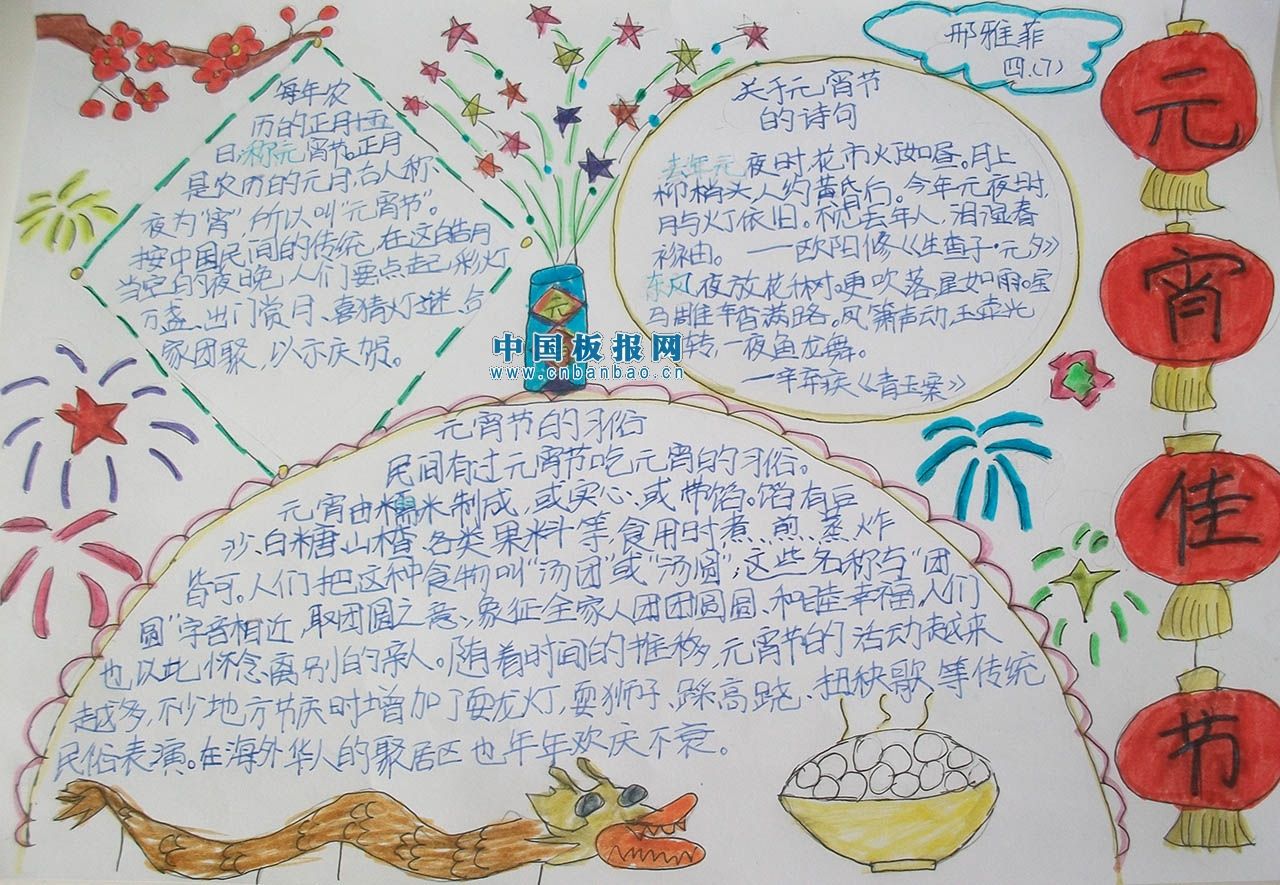 每年农
历的正月十五
日,称元宵节。正月
是农历的元月,古人称、
夜为"宵",所以叫"元宵节"。
按中国民间的传统,在这皓月
当空的夜晚,人们要点起彩灯
万盏、出门赏月、喜猜灯谜、合
家团聚,以示庆贺。
关于元宵节
的诗句
去年元夜时花市灯如昼。月上
柳梢头人约黄昏后。今年元夜时,
月与灯依旧。不见去年人,泪湿春
衫袖。——欧阳修《生查子·元夕》
东风夜放花千树。更吹落,星如雨。宝
马雕车香满路。凤箫声动,玉壶光
转,一夜鱼龙舞。
—辛弃疾《青玉案》
邢雅菲
四.(7)
元
宵
佳
节
元
中国板报网
www.cnbanbao.cn
元宵节的习俗
民间有过元宵节吃元宵的习俗。
元宵由糯米制成,或实心、或带馅。馅有豆
沙、白糖、山楂、各类果料等,食用时煮、煎、蒸、炸
皆可。人们把这种食物叫"汤团"或"汤圆",这些名称与"团
圆"字音相近,取团圆之意,象征全家人团团圆圆、和睦幸福,人们
也以此怀念离别的亲人。随着时间的推移,元宵节的活动越来
越多,不少地方节庆时增加了耍龙灯,耍狮子、踩高跷、扭秧歌等传统
民俗表演。在海外华人的聚居区也年年欢庆不衰。